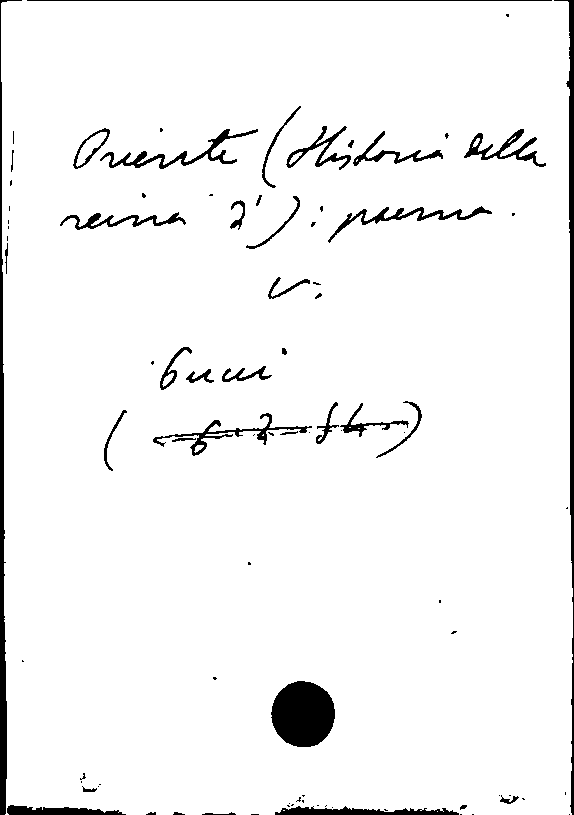 Oriente (Historia della
reina d') : poema.
v.
Pucci
( 6. 2. 84. )